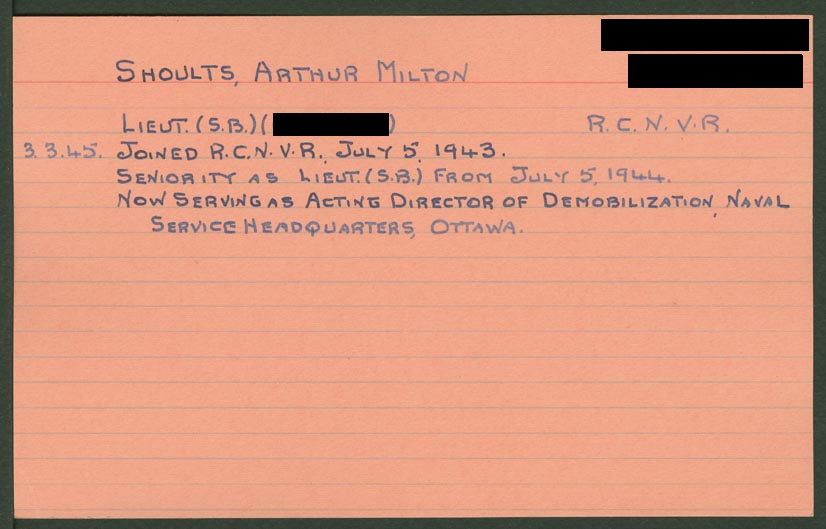 SHOULTS, ARTHUR MILTON
LIEUT. (S.B.) ( ) R.C.N.V.R.
3.3.45. JOINED R.C.N.V.R. JULY 5, 1943.
SENIORITY AS LIEUT. (S.B.) FROM JULY 5, 1944.
NOW SERVING AS ACTING DIRECTOR OF DEMOBILIZATION, NAVAL
SERVICE HEADQUARTERS, OTTAWA.